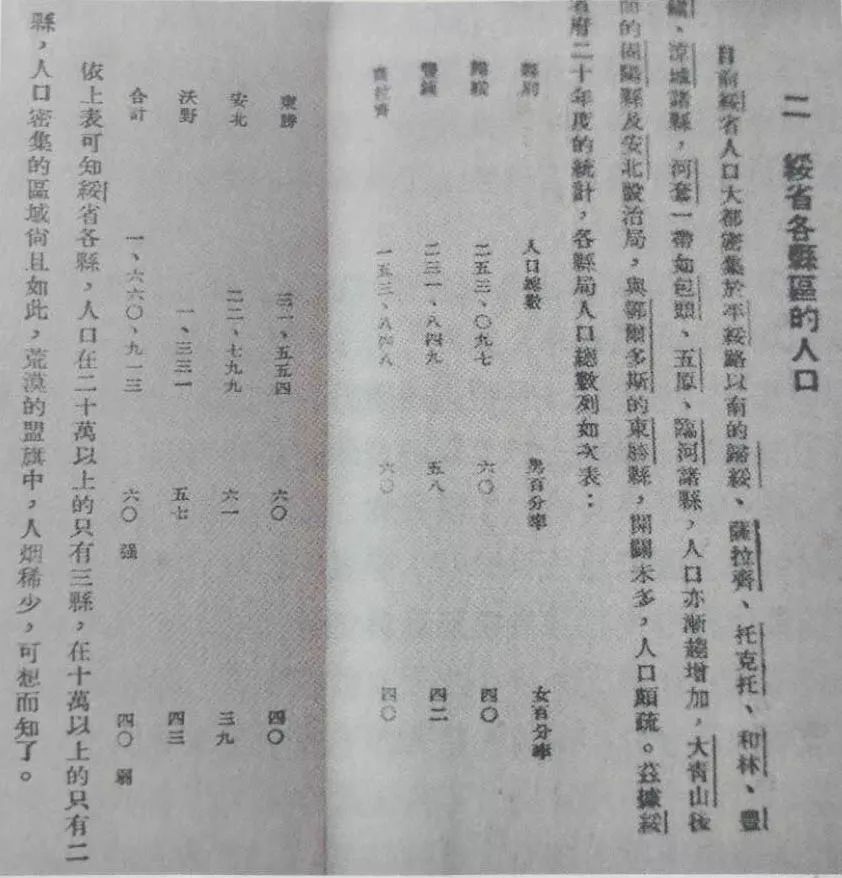 二 綏省各縣區的人口
目前綏省人口大都密集於平綏路以南的歸綏、薩拉齊、托克托、和林、豐
鎮、涼城諸縣,河套一帶如包頭、五原、臨河諸縣,人口亦漸趨增加,大青山後
面的固陽縣及安北設治局,與鄂爾多斯的東勝縣,開闢未多,人口頗疏。茲據綏
省府二十年度的統計,各縣局人口總數列如次表:
縣別 人口總數 男百分率 女百分率
歸綏 二五三、〇九七 六〇 四〇
豐鎮 二三一、八四九 五八 四二
薩拉齊 一五三、八四八 六〇 四〇
東勝 三一、五五四 六〇 四〇
安北 二二、七九九 六一 三九
沃野 一、三三一 五七 四三
合計 一、六六〇、九一三 六〇強 四〇弱
依上表可知綏省各縣,人口在二十萬以上的只有三縣,在十萬以上的只有二
縣,人口密集的區域尙且如此,荒漠的盟旗中,人烟稀少,可想而知了。